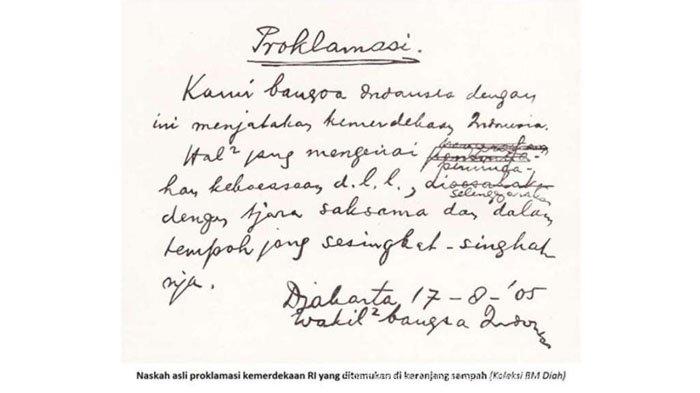 Proklamasi.
Kami bangsa Indonesia dengan
ini menjatakan kemerdekaan Indonesia.
Hal² jang mengenai
peminda-
han keboeasaan d.l.l.,
selenggarakan
dengan tjara saksama dan dalam
tempoh jang sesingkat-singkat
nja.
Djakarta, 17 - 8 - '05
Wakil² bangsa Indonesia
Naskah asli proklamasi kemerdekaan RI yang ditemukan di keranjang sampah (Koleksi BM Diah)